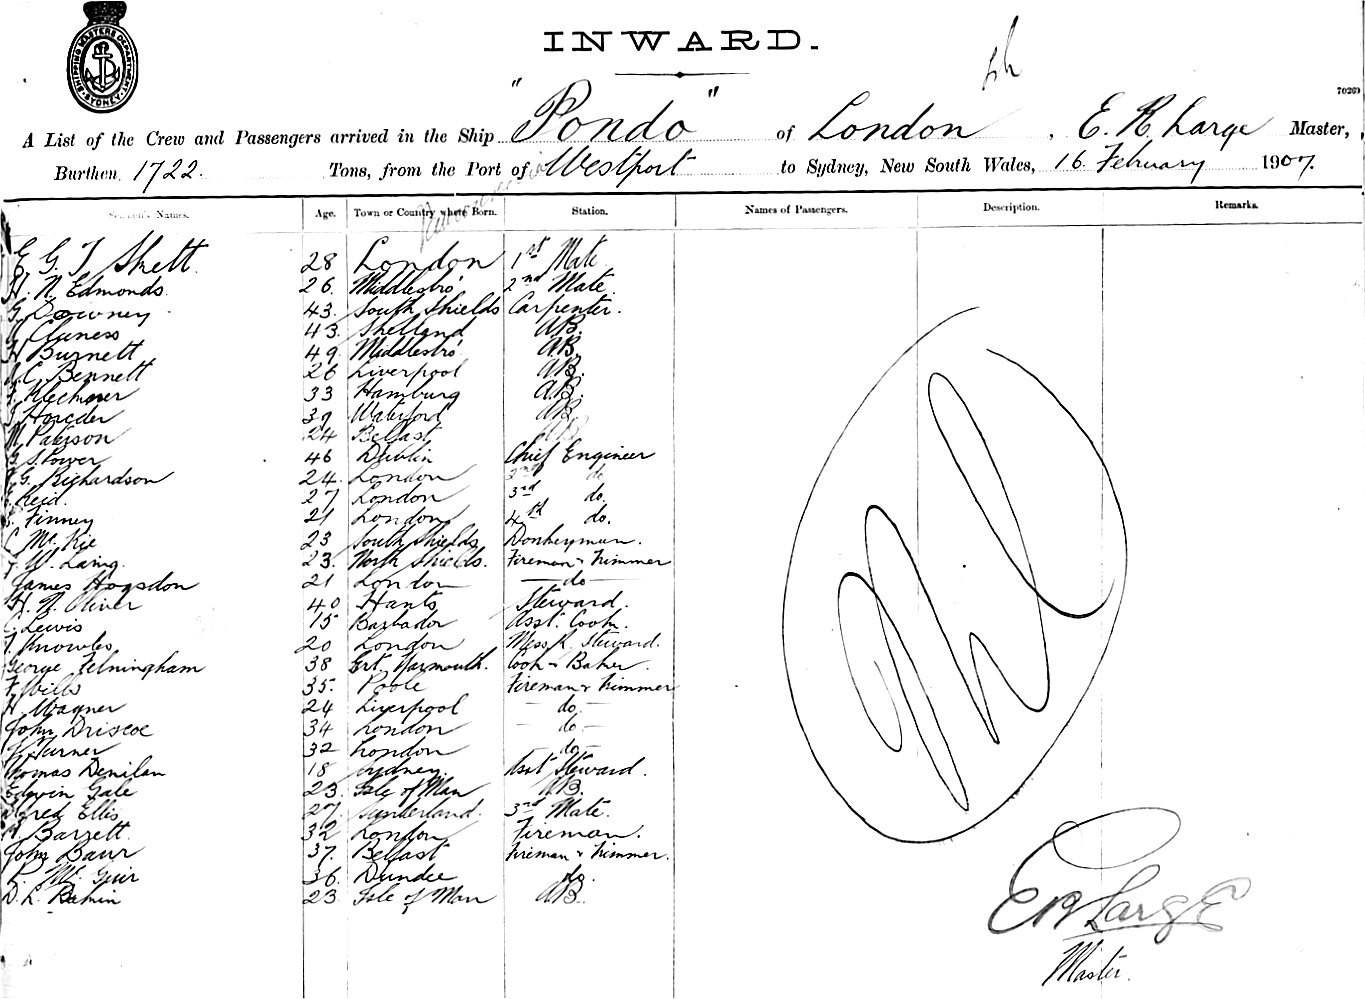 SHIPPING MASTERS DEPARTMENT SYDNEY
INWARD.
70269
A List of the Crew and Passengers arrived in the Ship "Pondo" of London, E. R. Large Master,
Burthen 1722. Tons, from the Port of Westport to Sydney, New South Wales, 16 February 1907.
Seamen's Names. Age. Town or Country where Born. Station. Names of Passengers. Description. Remarks.
E G T Skett. 28 London 1st Mate
H. N. Edmonds. 26. Middlesbro' 2nd Mate
G. Downey. 43. South Shields Carpenter.
Cluness 43. Shetland A.B.
H Burnett 49. Middlesbro' A.B.
C. Bennett 26 Liverpool A.B.
33 Hamburg A.B.
39 Waterford A.B.
Paterson 24 Belfast A.B.
Power 46 Dublin Chief Engineer
G. Richardson 24. London 2nd do
Reid. 27 London 3rd do.
Finney 21 London 4th do.
C McKie 23 South Shields Donkeyman.
W. Laing. 23. North Shields. Fireman & Trimmer
James Hogsdon 21 London do
H. N. Oliver 40 Hants Steward.
C Lewis 15 Barbados Asst. Cook.
Knowles 20 London Mess R. Steward.
George Felmingham 38 Grt. Yarmouth. Cook & Baker.
F Wills 35. Poole Fireman & Trimmer
H. Wagner 24 Liverpool do
John Driscoe 34 London do
Turner 32 London do
Thomas Denilan 18 Sydney. Asst Steward.
Edwin Gale 23. Isle of Man A.B.
Alfred Ellis 27. Sunderland. 3rd Mate.
Barrett. 32 London Fireman.
John Baur 37. Belfast Fireman & Trimmer.
Mc Geir 36. Dundee do.
D. L. 23 Isle of Man A.B.
Nil
E R Large
Master.